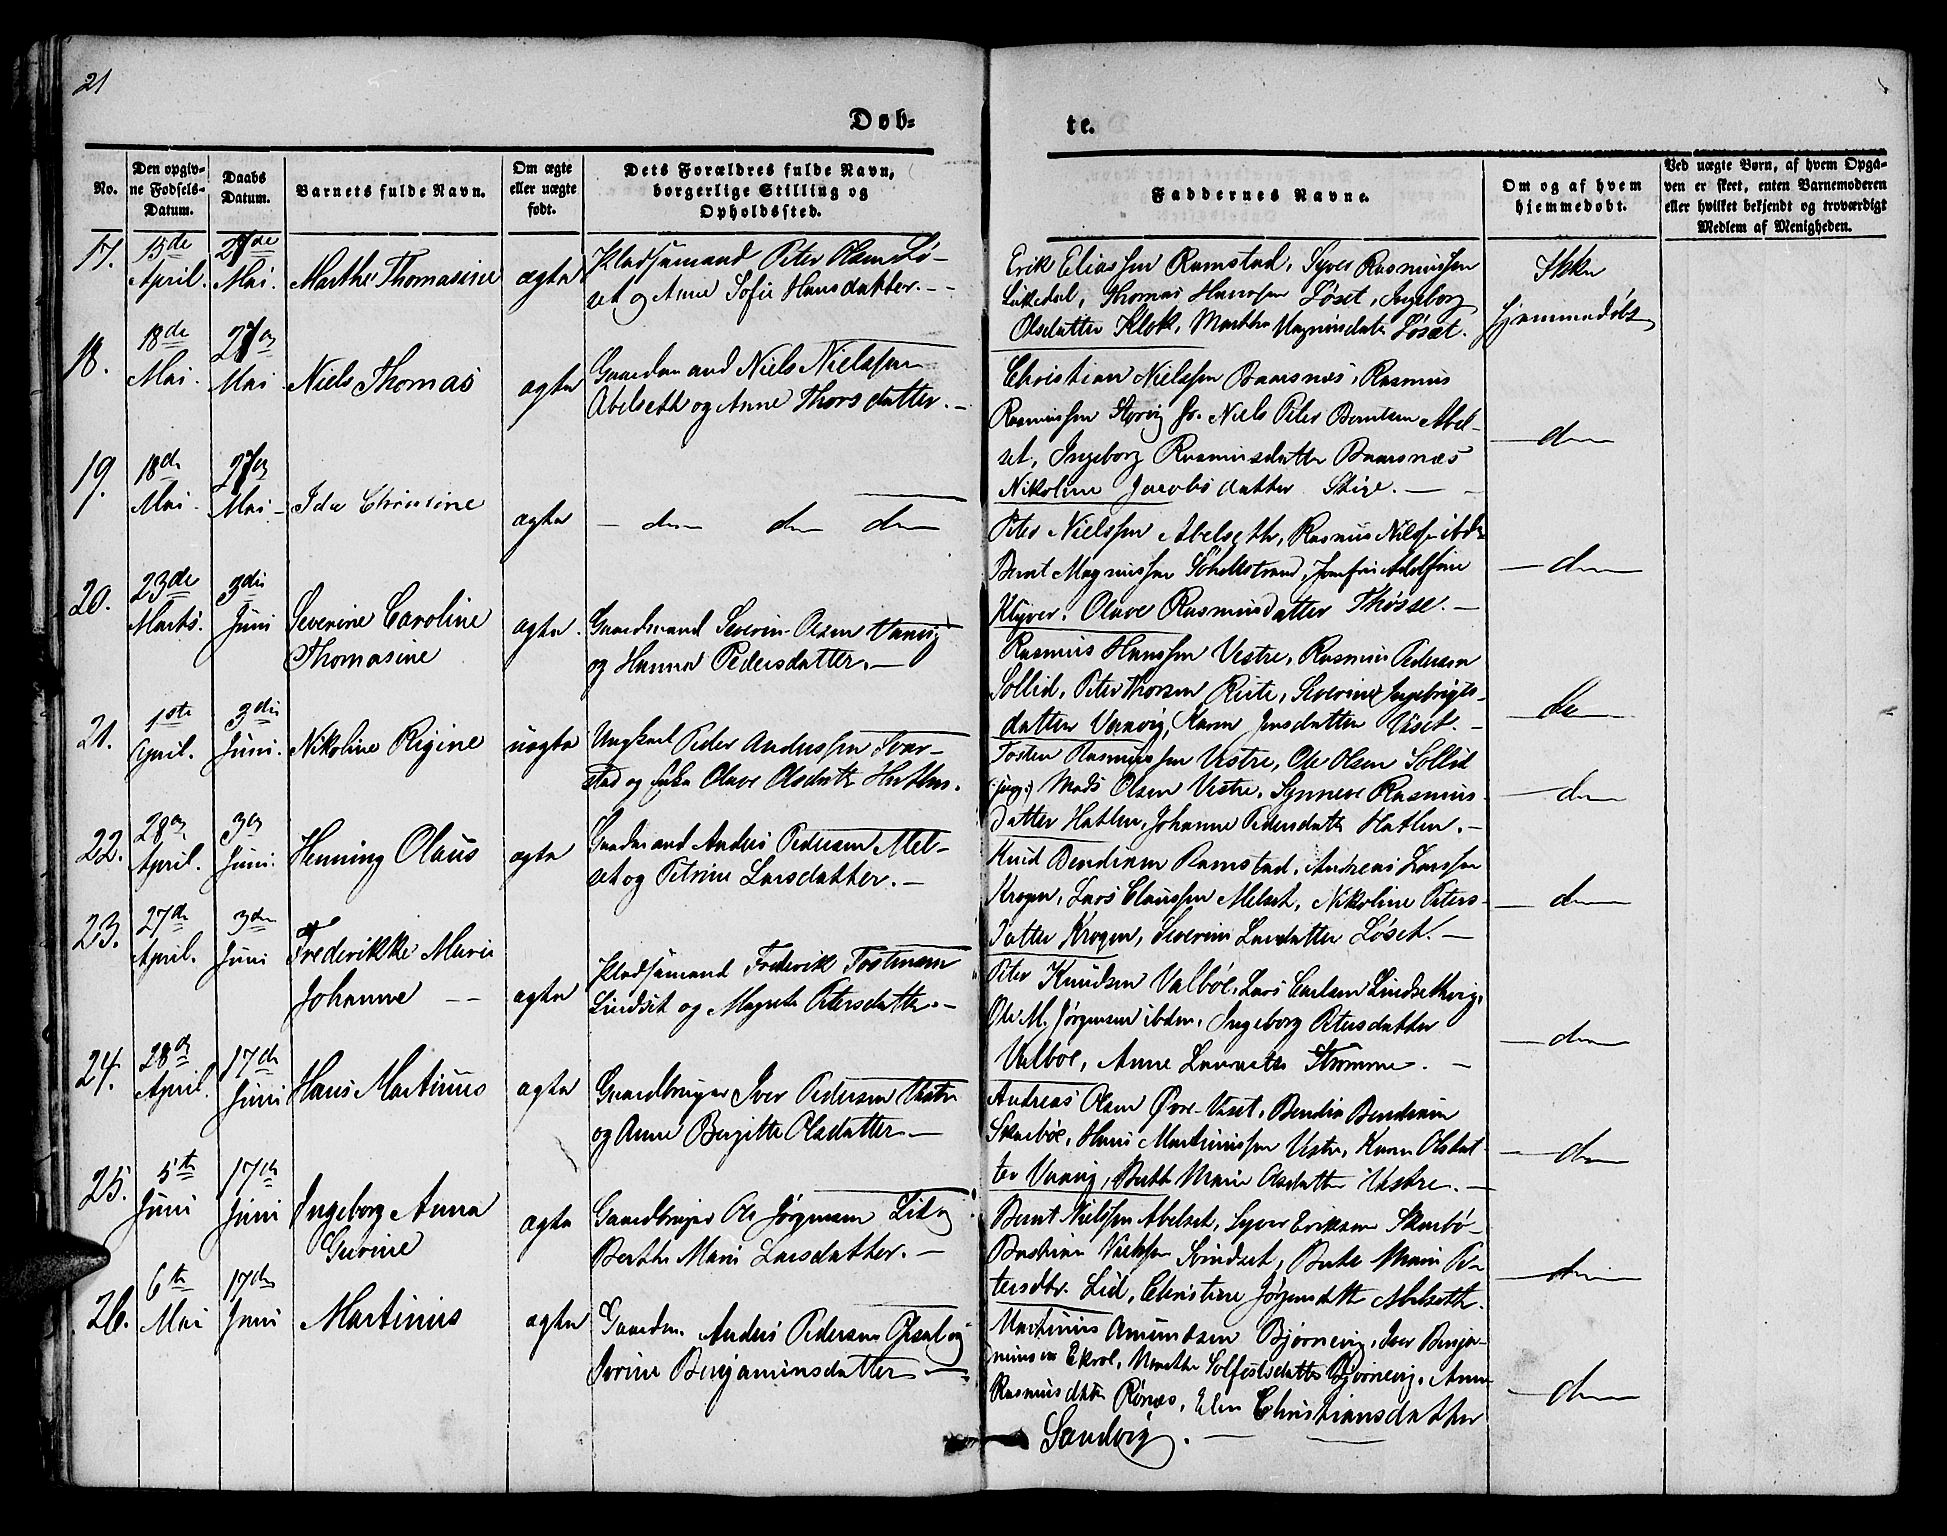 21
Døb-
te.
No.
Den opgiv-
ne Fødsels-
Datum.
Daabs
Datum.
Barnets fulde Navn.
Om ægte
eller uægte
født.
Dets Forældres fulde Navn,
borgerlige Stilling og
Opholdssted.
Faddernes Navne.
Om og af hvem
hiemmedøbt.
Ved uægte Børn, af hvem Opga-
ven er skeet, enten Barnemoderen
eller hvilket bekjendt og troværdigt
Medlem af Menigheden.
17.
15de
April.
27de
Mai.
Marthe Thomasine
ægte
Pladsmand Peter Olsen Lø-
set og Anne Sofie Hansdatter.
Erik Eliassen Ramstad, Syver Rasmussen
Thomas Hanssen Løset, Ingeborg
Olsdatter Klok, Marthe Magnusdatter Løset.
Ikke
hjemmedøbt
18.
18de
Mai.
27de
Mai
Niels Thomas
ægte
Gaardmand Niels Nielssen
Abelseth og Anne Thorsdatter.
Christian Nielssen Baarsnæs, Rasmus
Rasmussen Storvig Niels Peter Berntsen Abel-
set, Ingeborg Rasmusdatter Baarsnæs
Nikoline Jacobsdatter
do
19.
18de
Mai
27de
Mai
Ida Christine
ægte
do do do
Peter Nielssen Abelseth, Rasmus Nilssen ibdm
Bernt Magnussen Adolfine
Klyver. Olave Rasmusdatter Thøsse.
do
20.
23de
Marts.
3die
Juni
Severine Caroline
Thomasine
ægte
Gaardmand Severin Olsen Varvig
og Hanna Pedersdatter.
Rasmus Hanssen Vestre, Rasmus Pedersen
Sollid, Peter Thorsen Reite, Severine Ingebrigts-
datter Varvig, Karen Jensdatter
do
21.
1ste
April.
3die
Juni.
Nikoline Rigine
uægte
Ungkarl Peder Anderssen Svor-
stad og Olave Olsdatter Hatlen.
Tosten Rasmussen Vestre, Ole Olsen Sollid
Mads Olsen Vestre, Synneve Rasmus-
datter Hatlen, Johanne Pedersdatter Hatlen.
do
22.
28de
April.
3die
Juni.
Henning Olaus
ægte
Gaardmand Anders Pedersen Mel-
set og Petrine Larsdatter.
Knud Bendixen Ramstad, Andreas Larssen
Krogen, Lars Claussen Melset, Nikoline Peters-
datter Krogen, Severine Larsdatter Løset.
do
23.
27de
April.
3die
Juni
Frederikke Marie
Johanne
ægte
Pladsmand Frederik Tostensen
Lindset og Magrete Petersdatter.
Peter Knudsen Valbøe, Lars Carlsen Lindsethvig,
Ole M. Jørgensen ibdm, Ingeborg Petersdatter
Valbøe, Anne Strømme.
do
24.
28de
April.
17de
Juni
Hans Martinus
ægte
Gaardbruger Iver Pedersen Vestre
og Anne Bergitte Olsdatter.
Andreas Olsen Øvre-Vaset, Bendix Bendixsen
Skarbøe, Hans Martinussen Vestre, Karen Olsdat-
ter Varvig, Berthe Marie Olsdatter Vestre.
do
25.
5te
Juni
17de
Juni
Ingeborg Anna
Gurine
ægte
Gaardbruger Ole Jørgensen Lid og
Berthe Marie Larsdatter.
Bernt Nielssen Abelset, Syver Eriksen Skarbø-
Bastian Svindset, Berte Marie Pe-
tersdtr. Lid, Christine Jørgensdatter Abelseth.
do
26.
6te
Mai
17de
Juni
Martinus
ægte
Gaardm. Anders Pedersen og
Sorine Benjaminsdatter
Martinus Amundsen Bjørnevig, Iver Benja-
minsen Ekrol, Marthe Solfestsdatter Bjørnevig, Anne
Rasmusdatter Rønæs, Elen Christiansdatter
Sandvig.
do